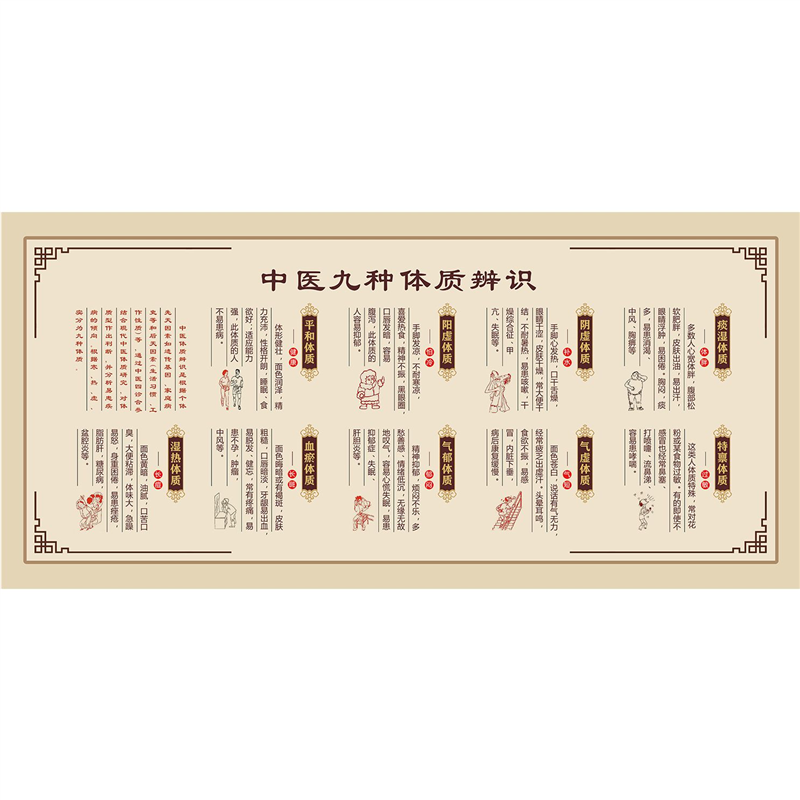 中医九种体质辨识
中医体质辨识是根据个体
先天因素如遗传基因、家庭病
史等和后天因素(生活习惯、工
作性质)等,通过中医四诊合参
结合现代中医体质研究,对体
质型作出判断,并分析易患疾
病的倾向,根据寒、热、虚
实分为九种体质。
平和体质
健康
体形健壮,面色润泽,精
力充沛,性格开朗,睡眠、食
欲好;适应能力
强,此体质的人
不易患病。
阳虚体质
怕冷
手脚发凉,不耐寒凉,
喜爱热食,精神不振,黑眼圈,
口唇发暗,容易
腹泻,此体质的
人容易抑郁。
阴虚体质
补水
手脚心发热,口干舌燥,
眼睛干涩,皮肤干燥,常大便干
结,不耐暑热,易患咳嗽,干
燥综合征,甲
亢、失眠等。
痰湿体质
体胖
多数人心宽体胖,腹部松
软肥胖,皮肤出油,易出汗,
眼睛浮肿,易困倦。胸闷,痰
多,易患消渴、
中风、胸痹等
湿热体质
长痘
面色黄暗,油腻,口苦口
臭,大便粘滞,体味大,急躁
易怒,身重困倦,易患痤疮,
脂肪肝,糖尿病,
盆腔炎等。
血瘀体质
长斑
面色晦暗或有褐斑,皮肤
粗糙,口唇暗淡,牙龈易出血,
易脱发、健忘,常有疼痛,易
患不孕,肿瘤
中风等。
气郁体质
郁闷
精神抑郁,烦闷不乐,多
愁善感,情绪低沉,无缘无故
地叹气,容易心慌失眠,易患
抑郁症、失眠
肝胆炎等。
气虚体质
气短
面色苍白,说话有气无力,
经常疲乏出虚汗。头晕耳鸣,
食欲不振,易感
冒,内脏下垂,
病后康复缓慢。
特禀体质
过敏
这类人体质特殊,常对花
粉或某食物过敏。有的即使不
感冒也经常鼻塞、
打喷嚏、流鼻涕、
容易患哮喘。